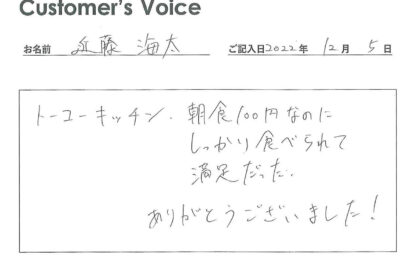 Customer's Voice
お名前 近藤 海太 ご記入日2022年 12月 5日
トーコーキッチン. 朝食100円なのに
しっかり食べられて
満足だった.
ありがとうございました!